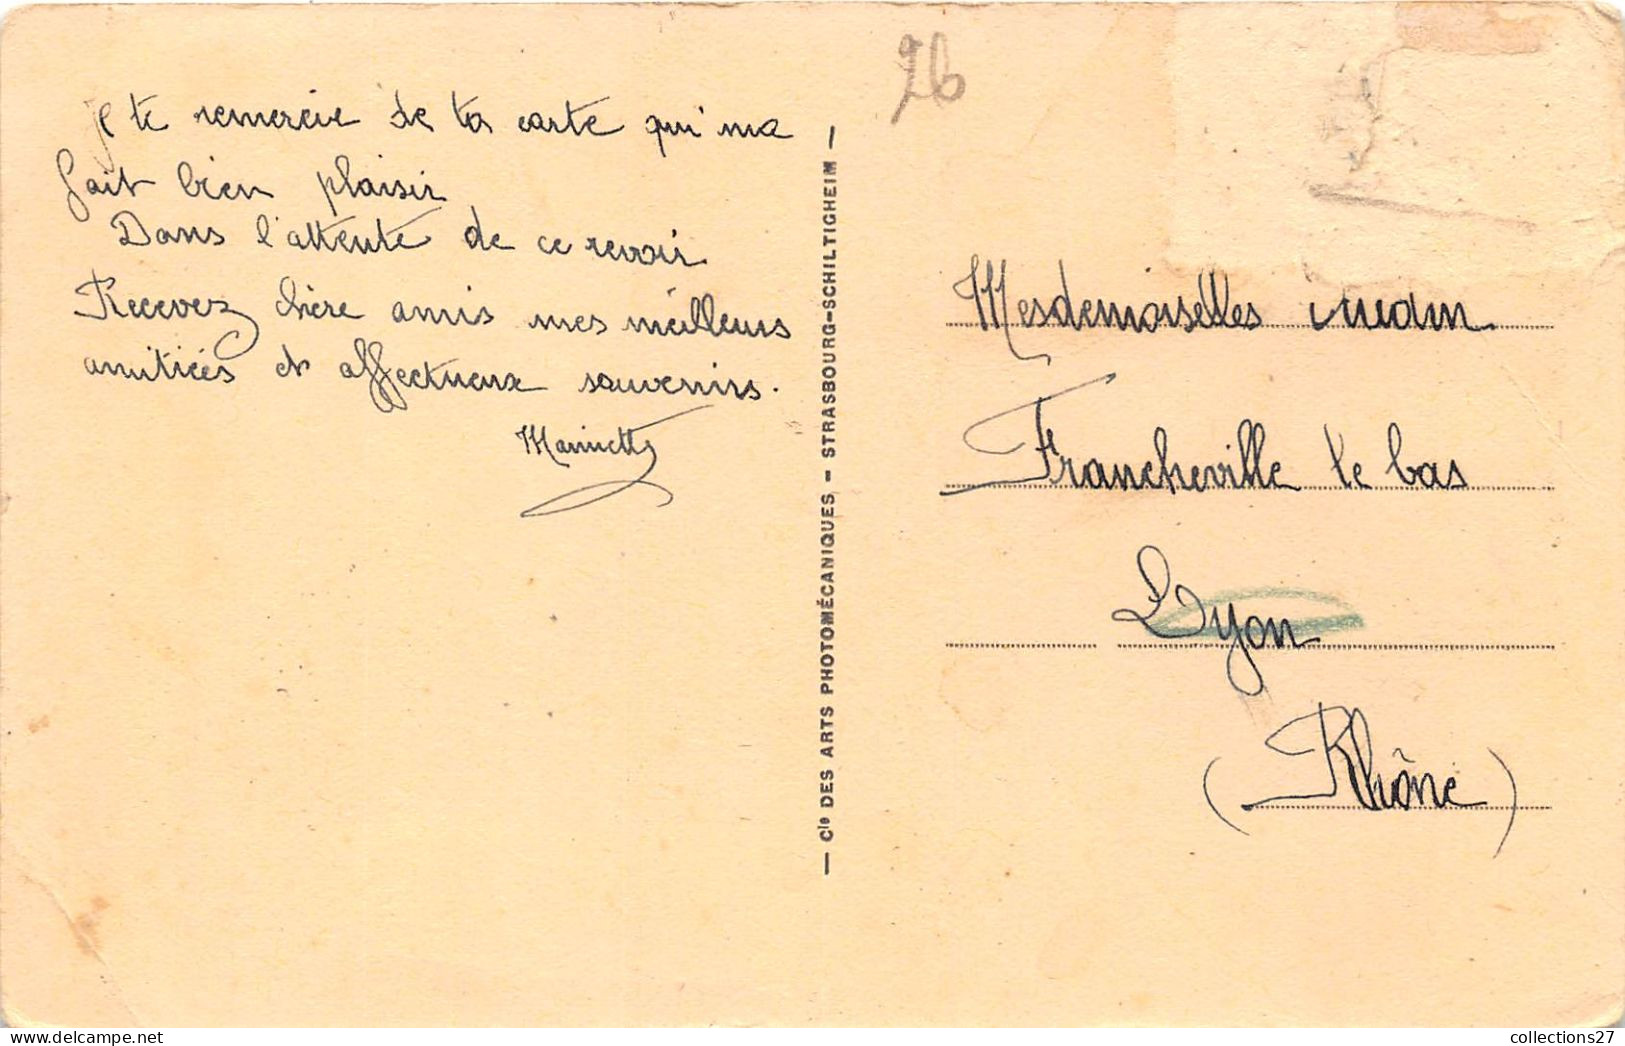 Je te remercie de ta carte qui m'a
fait bien plaisir
Dans l'attente de ce revoir
Recevez chère amis mes meilleurs
amitiées et affectueux souvenirs.
— Cie DES ARTS PHOTOMÉCANIQUES – STRASBOURG-SCHILTIGHEIM —
26
Mesdemoiselles
Francheville le bas
Lyon
(Rhône)
collections27